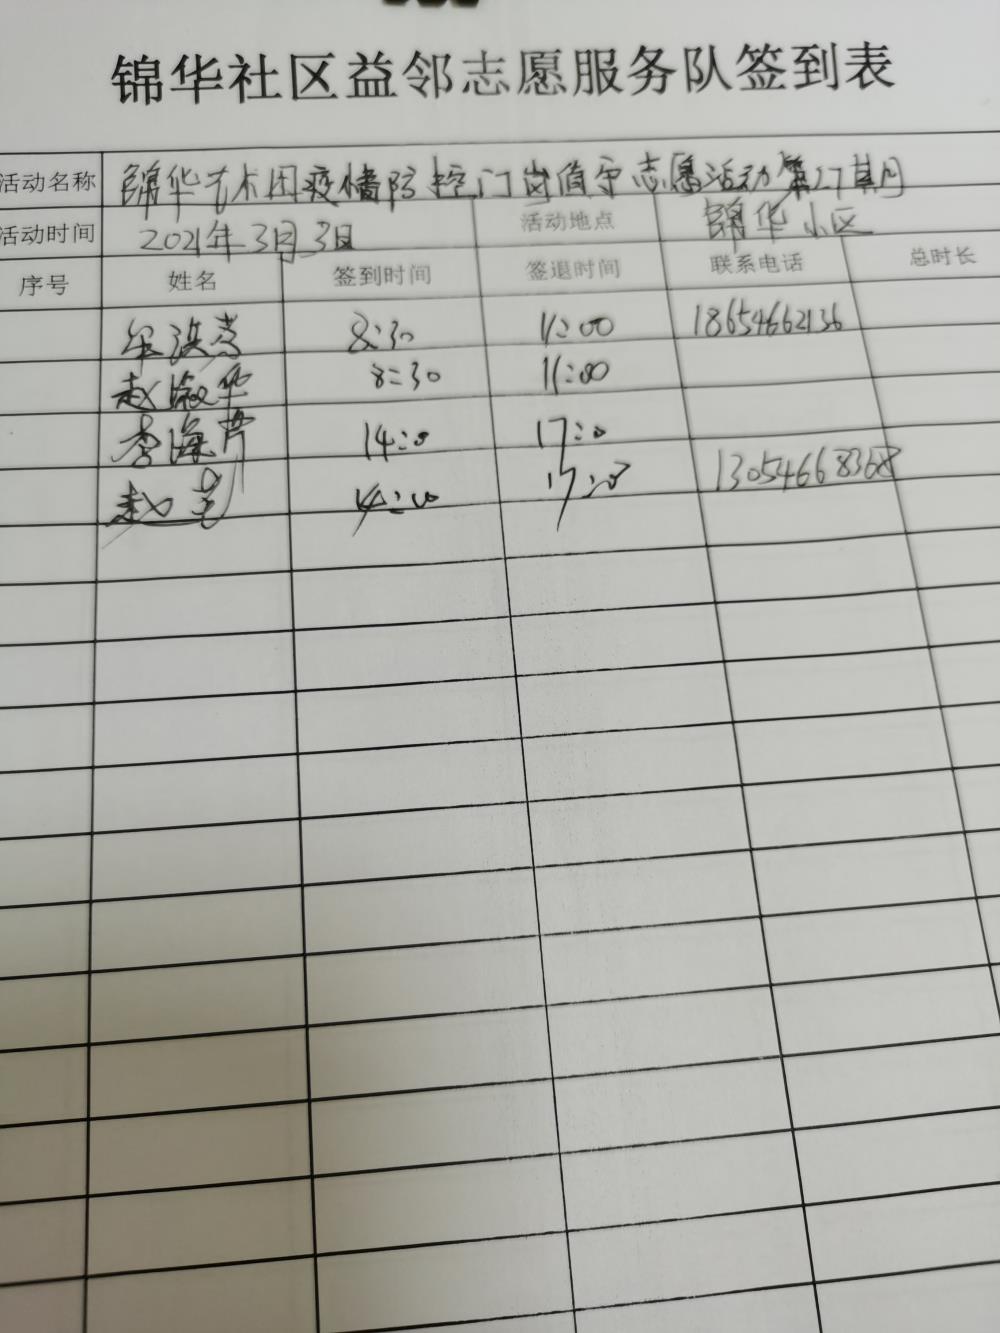 锦华社区益邻志愿服务队签到表
活动名称 锦华艺术团疫情防控门岗值守志愿活动第27期
活动时间 2021年3月3日 活动地点 锦华小区
序号 姓名 签到时间 签退时间 联系电话 总时长
8:30 11:00 18654662136
赵淑华 8:30 11:00
李海芹 14:0 17:0
赵 13054668368